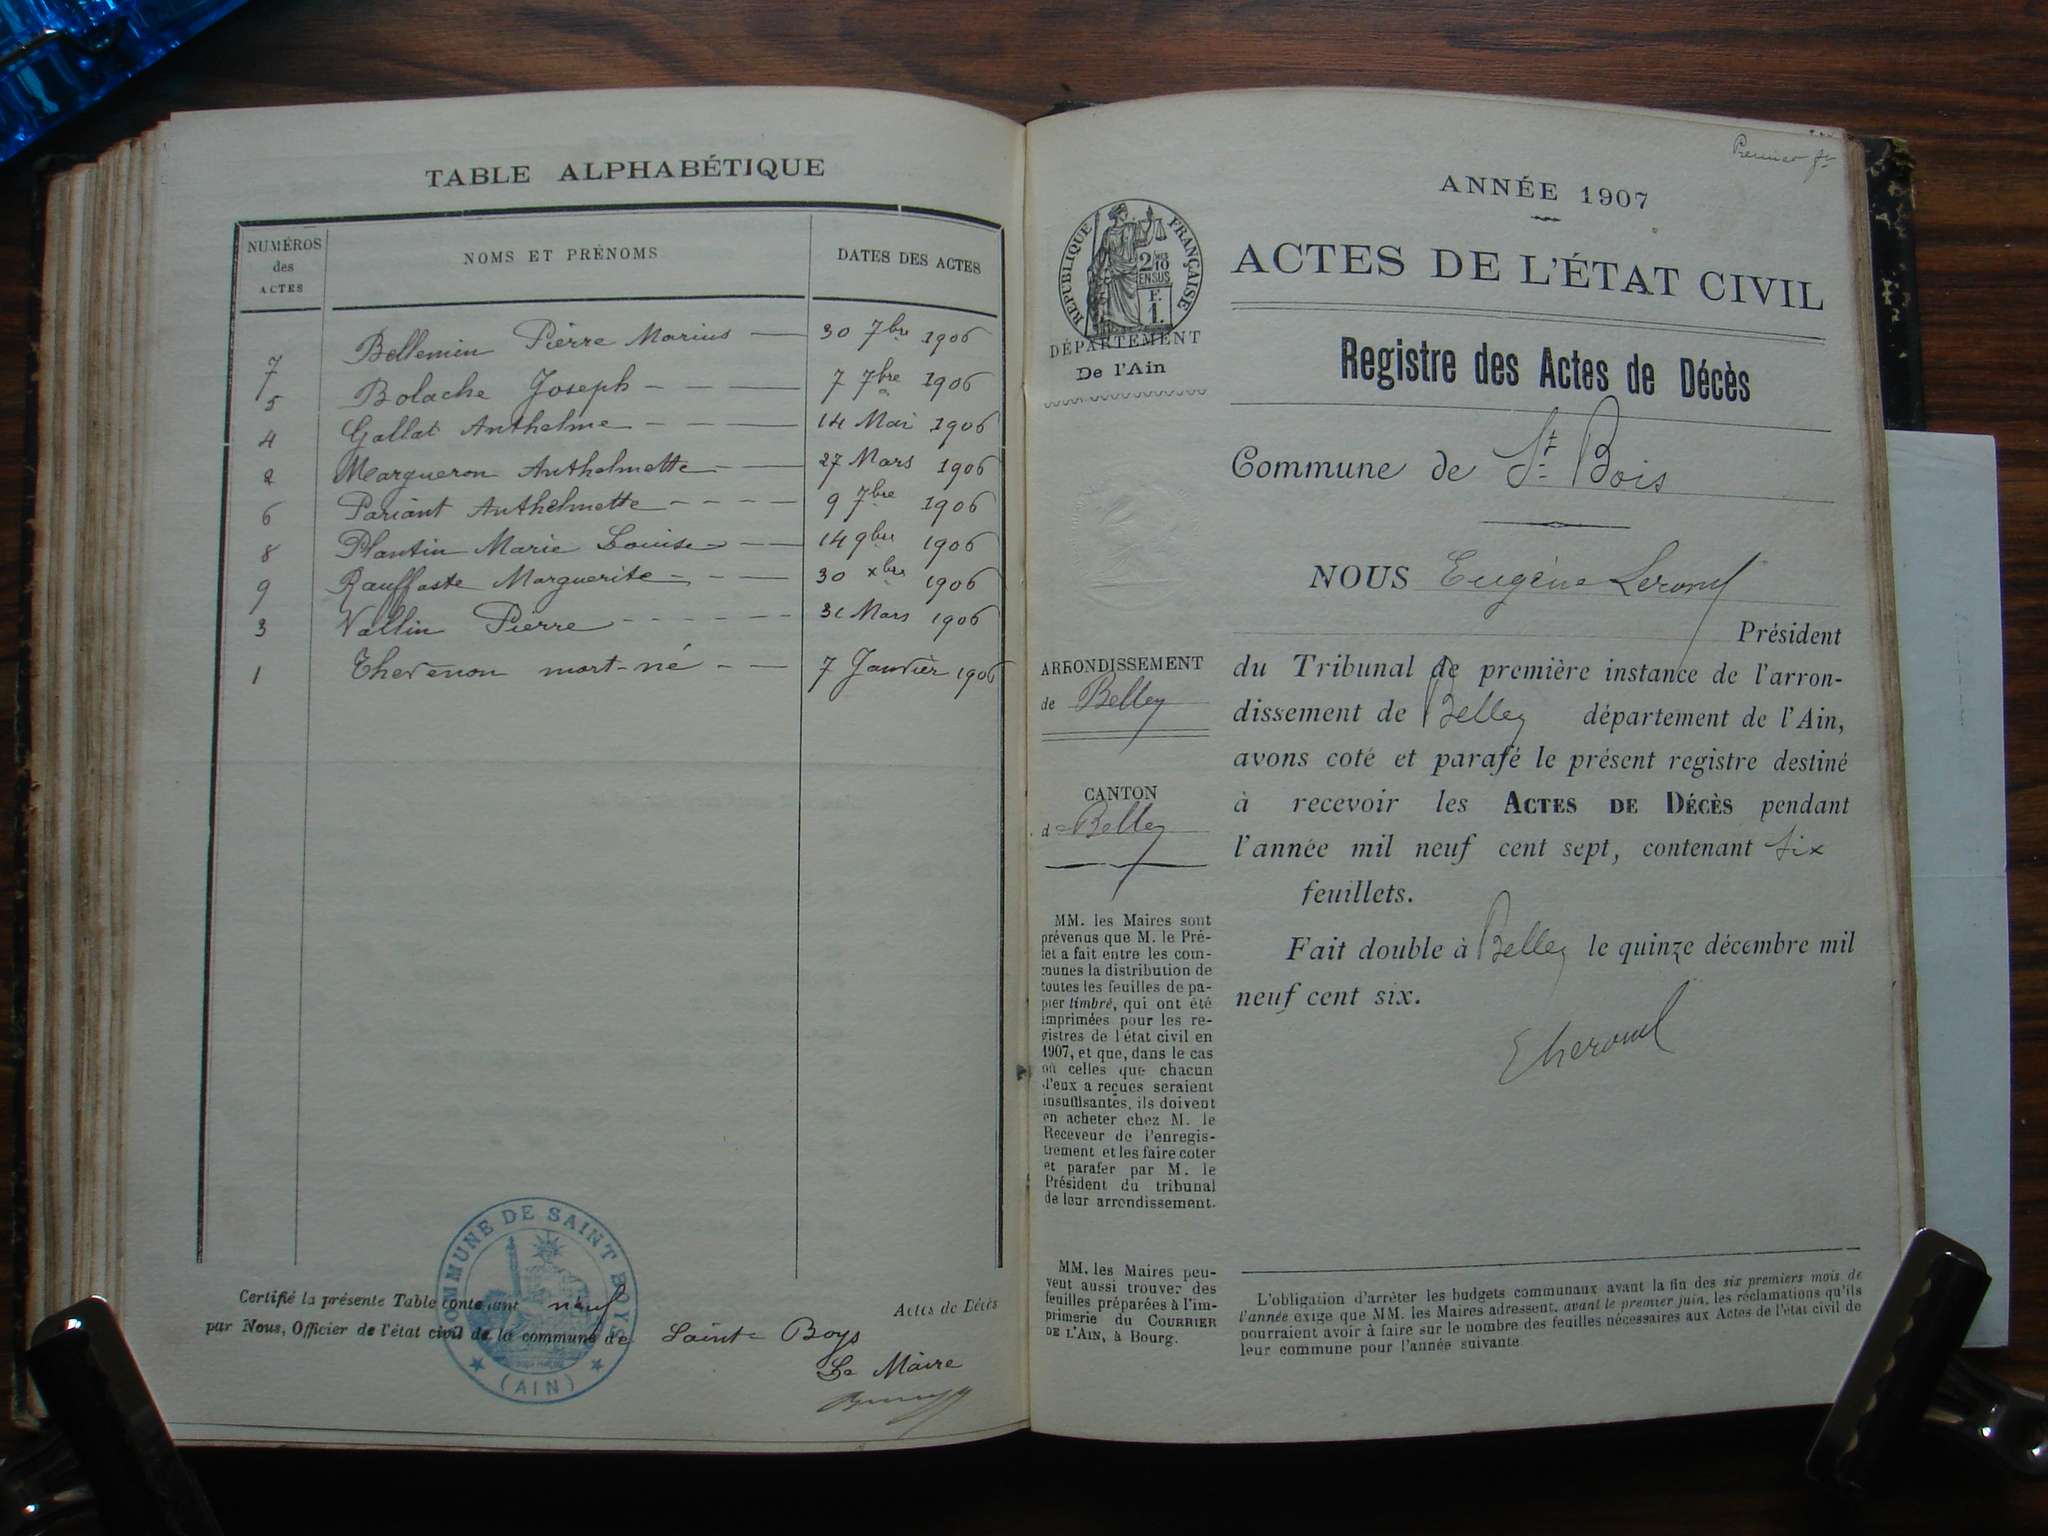 TABLE ALPHABÉTIQUE
NUMÉROS des ACTES NOMS ET PRÉNOMS DATES DES ACTES
7 Bellemin Pierre Marius — 30 7bre 1906
5 Bolache Joseph — 7 7bre 1906
4 Gallat Anthelme — 14 Mai 1906
2 Margueron Anthelmette — 27 Mars 1906
6 Pariant Anthelmette — 9 7bre 1906
8 Plantin Marie Louise — 14 9bre 1906
9 Rauffaste Marguerite — 30 xbre 1906
3 Vallin Pierre — 31 Mars 1906
1 Thevenon mort-né — 7 Janvier 1906
Certifié la présente Table contenant neuf Actes de Décès
par Nous, Officier de l'état civil de la commune de Sainte Boys
Le Maire
COMMUNE DE SAINT BOYS
(AIN)
Premier
ANNÉE 1907
ACTES DE L'ÉTAT CIVIL
Registre des Actes de Décès
Commune de St Bois
NOUS Eugène
Président
du Tribunal de première instance de l'arron-
dissement de Belley département de l'Ain,
avons coté et parafé le présent registre destiné
à recevoir les ACTES DE DÉCÈS pendant
l'année mil neuf cent sept, contenant six
feuillets.
Fait double à Belley le quinze décembre mil
neuf cent six.
RÉPUBLIQUE FRANÇAISE
2/10
EN SUS
F.
1.
DÉPARTEMENT
De l'Ain
ARRONDISSEMENT
de Belley
CANTON
de Belley
MM. les Maires sont
prévenus que M. le Pré-
fet a fait entre les com-
munes la distribution de
toutes les feuilles de pa-
pier timbré, qui ont été
imprimées pour les re-
gistres de l'état civil en
1907, et que, dans le cas
où celles que chacun
d'eux a reçues seraient
insuffisantes, ils doivent
en acheter chez M. le
Receveur de l'enregis-
trement et les faire coter
et parafer par M. le
Président du tribunal
de leur arrondissement.
MM. les Maires peu-
vent aussi trouver des
feuilles préparées à l'im-
primerie du COURRIER
DE L'AIN, à Bourg.
L'obligation d'arrêter les budgets communaux avant la fin des six premiers mois de
l'année exige que MM. les Maires adressent, avant le premier juin, les réclamations qu'ils
pourraient avoir à faire sur le nombre des feuilles nécessaires aux Actes de l'état civil de
leur commune pour l'année suivante.